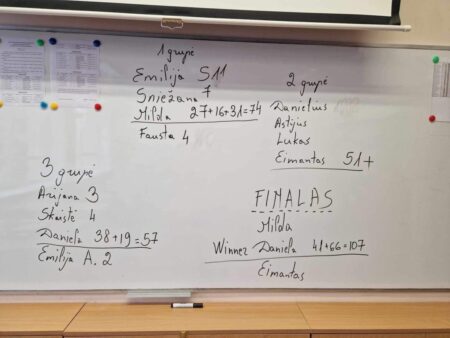 1 grupė
Emilija 511
Sniežana 7
Milda 27+16+31=74
Fausta 4
2 grupė
Danielius
Astijus
Lukas
Eimantas 51+
3 grupė
Arijana 3
Skaistė 4
Daniela 38+19=57
Emilija A. 2
FINALAS
Milda
Winner Daniela 41+66=107
Eimantas